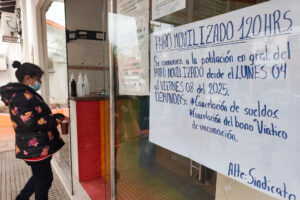 PARO MOVILIZADO 120HRS
Se comunica a la población en gral. del
PARO MOVILIZADO desde el LUNES 04
al VIERNES 08 del 2025.
DEMANDAS: *Cancelación de sueldos
*Cancelación del bono "Viatico
de vacunación.
Atte: Sindicato